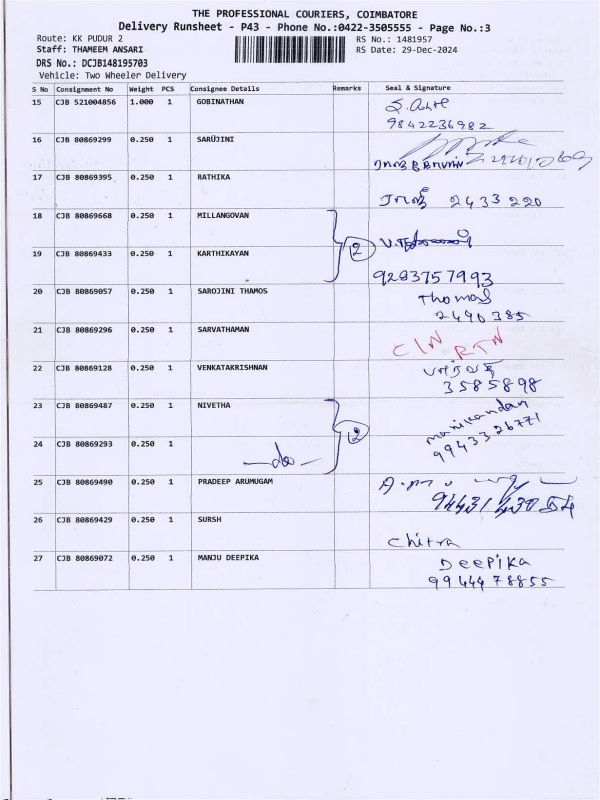 THE PROFESSIONAL COURIERS, COIMBATORE
Delivery Runsheet - P43 - Phone No.:0422-3505555 - Page No.:3
Route: KK PUDUR 2 RS No.: 1481957
Staff: THAMEEM ANSARI RS Date: 29-Dec-2024
DRS No.: DCJB148195703
Vehicle: Two Wheeler Delivery
S No Consignment No Weight PCS Consignee Details Remarks Seal & Signature
15 CJB 521004856 1.000 1 GOBINATHAN
9842236982
16 CJB 80869299 0.250 1 SARUJINI
17 CJB 80869395 0.250 1 RATHIKA
2433 220
18 CJB 80869668 0.250 1 MILLANGOVAN
2
19 CJB 80869433 0.250 1 KARTHIKAYAN
9283757993
20 CJB 80869057 0.250 1 SAROJINI THAMOS Thomas
2490385
21 CJB 80869296 0.250 1 SARVATHAMAN
C/N RTN
22 CJB 80869128 0.250 1 VENKATAKRISHNAN
3585898
23 CJB 80869487 0.250 1 NIVETHA Manikandan
2 9943326771
24 CJB 80869293 0.250 1
-do-
25 CJB 80869490 0.250 1 PRADEEP ARUMUGAM
26 CJB 80869429 0.250 1 SURSH
Chitra
27 CJB 80869072 0.250 1 MANJU DEEPIKA Deepika
9944478855